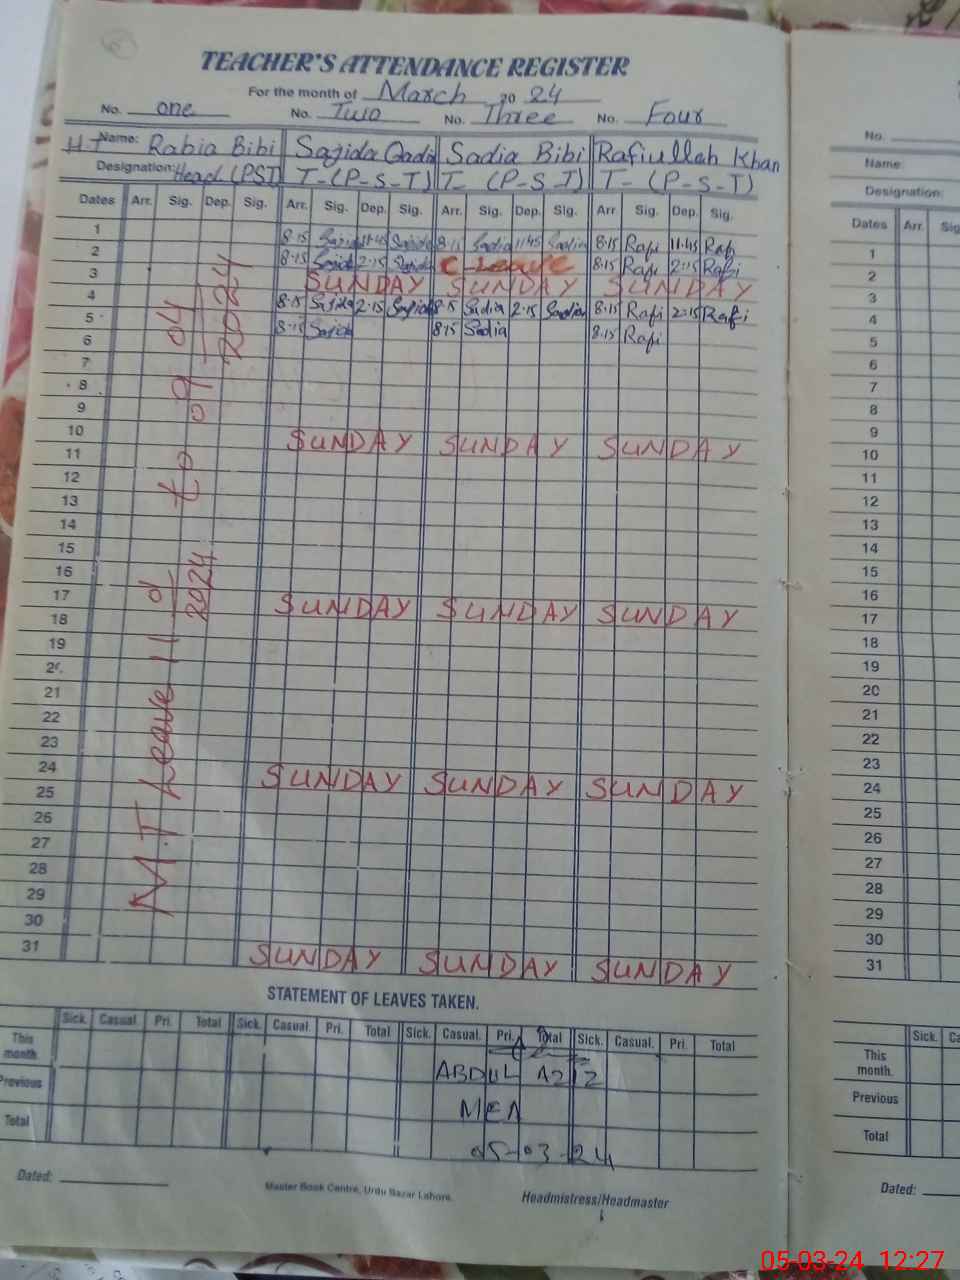 TEACHER'S ATTENDANCE REGISTER
For the month of March 20 24
No. one No. Two No. Three No. Four
H.T Name: Rabia Bibi Sajida Qadir Sadia Bibi Rafiullah Khan
Designation: Head (PST) T-(P-S-T) T- (P-S-T) T- (P-S-T)
Dates Arr. Sig. Dep. Sig. Arr. Sig. Dep. Sig. Arr. Sig. Dep. Sig. Arr Sig. Dep. Sig.
1 8.15 Sajida 11.45 Sajida 8.15 Sadia 11.45 Sadia 8.15 Rafi 11.45 Rafi
2 8.15 Sajida 2.15 Sajida C-Leave 8.15 Rafi 2.15 Rafi
3 SUNDAY SUNDAY SUNDAY
4 8.15 Sajida 2.15 Sajida 8.15 Sadia 2.15 Sadia 8.15 Rafi 2.15 Rafi
5 8.15 Sajida 8.15 Sadia 8.15 Rafi
6
7
8
9
10 SUNDAY SUNDAY SUNDAY
11
12
13
14
15
16
17 SUNDAY SUNDAY SUNDAY
18
19
20
21
22
23
24 SUNDAY SUNDAY SUNDAY
25
26
27
28
29
30
31 SUNDAY SUNDAY SUNDAY
M.T Leave 11 01 2024 to 09 04 2024
STATEMENT OF LEAVES TAKEN.
Sick. Casual. Pri. Total Sick. Casual. Pri. Total Sick. Casual. Pri. Total Sick. Casual. Pri. Total
This month
Previous
Total
ABDUL AZIZ
MEA
05-03-24
Dated:
Master Book Centre, Urdu Bazar Lahore.
Headmistress/Headmaster
No.
Name:
Designation:
Dates Arr. Sig
1
2
3
4
5
6
7
8
9
10
11
12
13
14
15
16
17
18
19
20
21
22
23
24
25
26
27
28
29
30
31
Sick. Ca
This month.
Previous
Total
Dated:
05-03-24 12:27